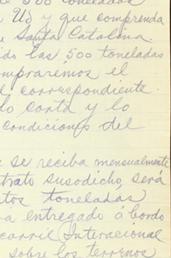 500 toneladas
Ud y que comprenda
e Santa Catalina
ido las 500 toneladas
mpraremos el
l correspondiente
lo corta y lo
condiciones del
e se reciba mensualmente
trato susodicho, será
tos toneladas
a entregado á bordo
carril Internacional
sobre los terrenos